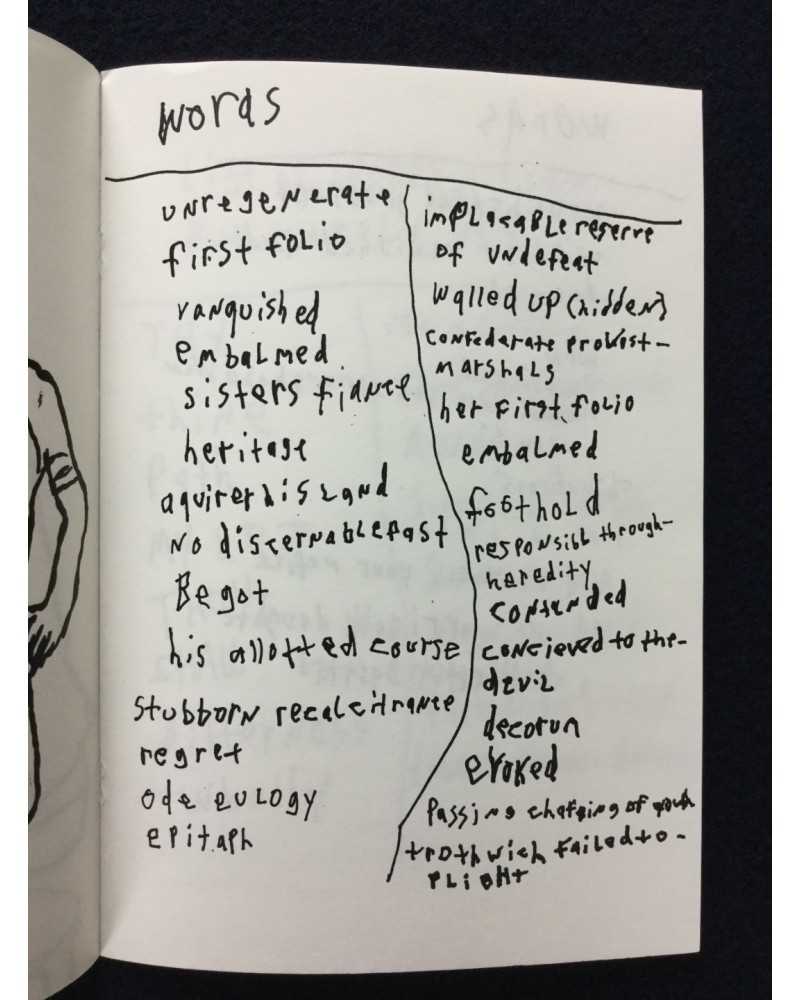 words
unregenerate
first folio
vanquished
embalmed
sisters fiance
heritage
aquired his land
No discernable past
Begot
his allotted course
stubborn recalcitrance
regret
ode eulogy
epitaph
implacable reserve
of undefeat
walled up (hidden)
confedarate provost-
marshals
her first folio
embalmed
foothold
responsibl through-
heredity
contended
concieved to the-
devil
decorun
evoked
Passing of
troth wich failed to-
plight